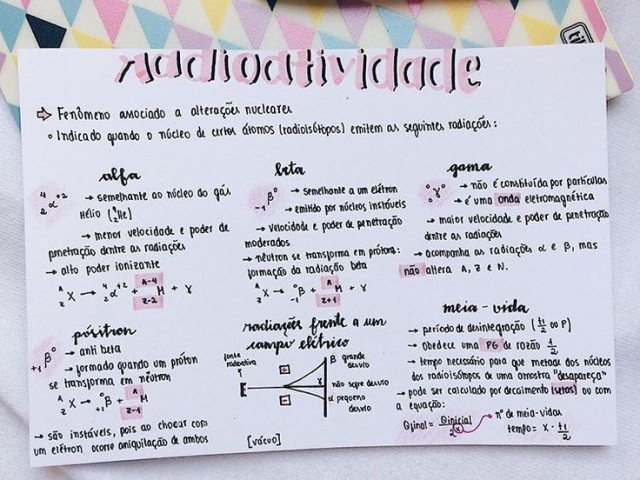 Radioatividade
⇨ Fenômeno associado a alterações nucleares
∘ Indicado quando o núcleo de certos átomos (radioisótopos) emitem as seguintes radiações:
alfa
⁴₂α⁺² → semelhante ao núcleo do gás
Hélio (⁴₂He)
→ menor velocidade e poder de
penetração dentre as radiações
→ alto poder ionizante
ᴬ_Z X → ⁴₂α⁺² + ᴬ⁻⁴_Z-2 M + γ
beta
₋₁β⁰ → semelhante a um elétron
→ emitido por núcleos instáveis
→ velocidade e poder de penetração
moderados
→ nêutron se transforma em próton:
formação da radiação beta
ᴬ_Z X → ⁰₋₁β + ᴬ_Z+1 M + γ
gama
⁰₀γ⁰ → não é constituída por partículas
→ é uma onda eletromagnética
→ maior velocidade e poder de penetração
dentre as radiações
→ acompanha as radiações α e β, mas
não altera A, Z e N.
pósitron
₊₁β⁰ → anti beta
→ formado quando um próton
se transforma em nêutron
ᴬ_Z X → ⁰₊₁β + ᴬ_Z-1 M
→ são instáveis, pois ao chocar com
um elétron ocorre aniquilação de ambos
radiações frente a um
campo elétrico
fonte
radioativa
β grande
desvio
γ não sofre desvio
α pequeno
desvio
[vácuo]
meia-vida
→ período de desintegração (t½ ou P)
→ obedece uma PG de razão ½
→ tempo necessário para que metade dos núcleos
dos radioisótopos de uma amostra "desapareça"
→ pode ser calculado por decaimento (setas) ou com
a equação:
Qfinal = Qinicial / 2ˣ → nº de meia-vidas
tempo = x · t½